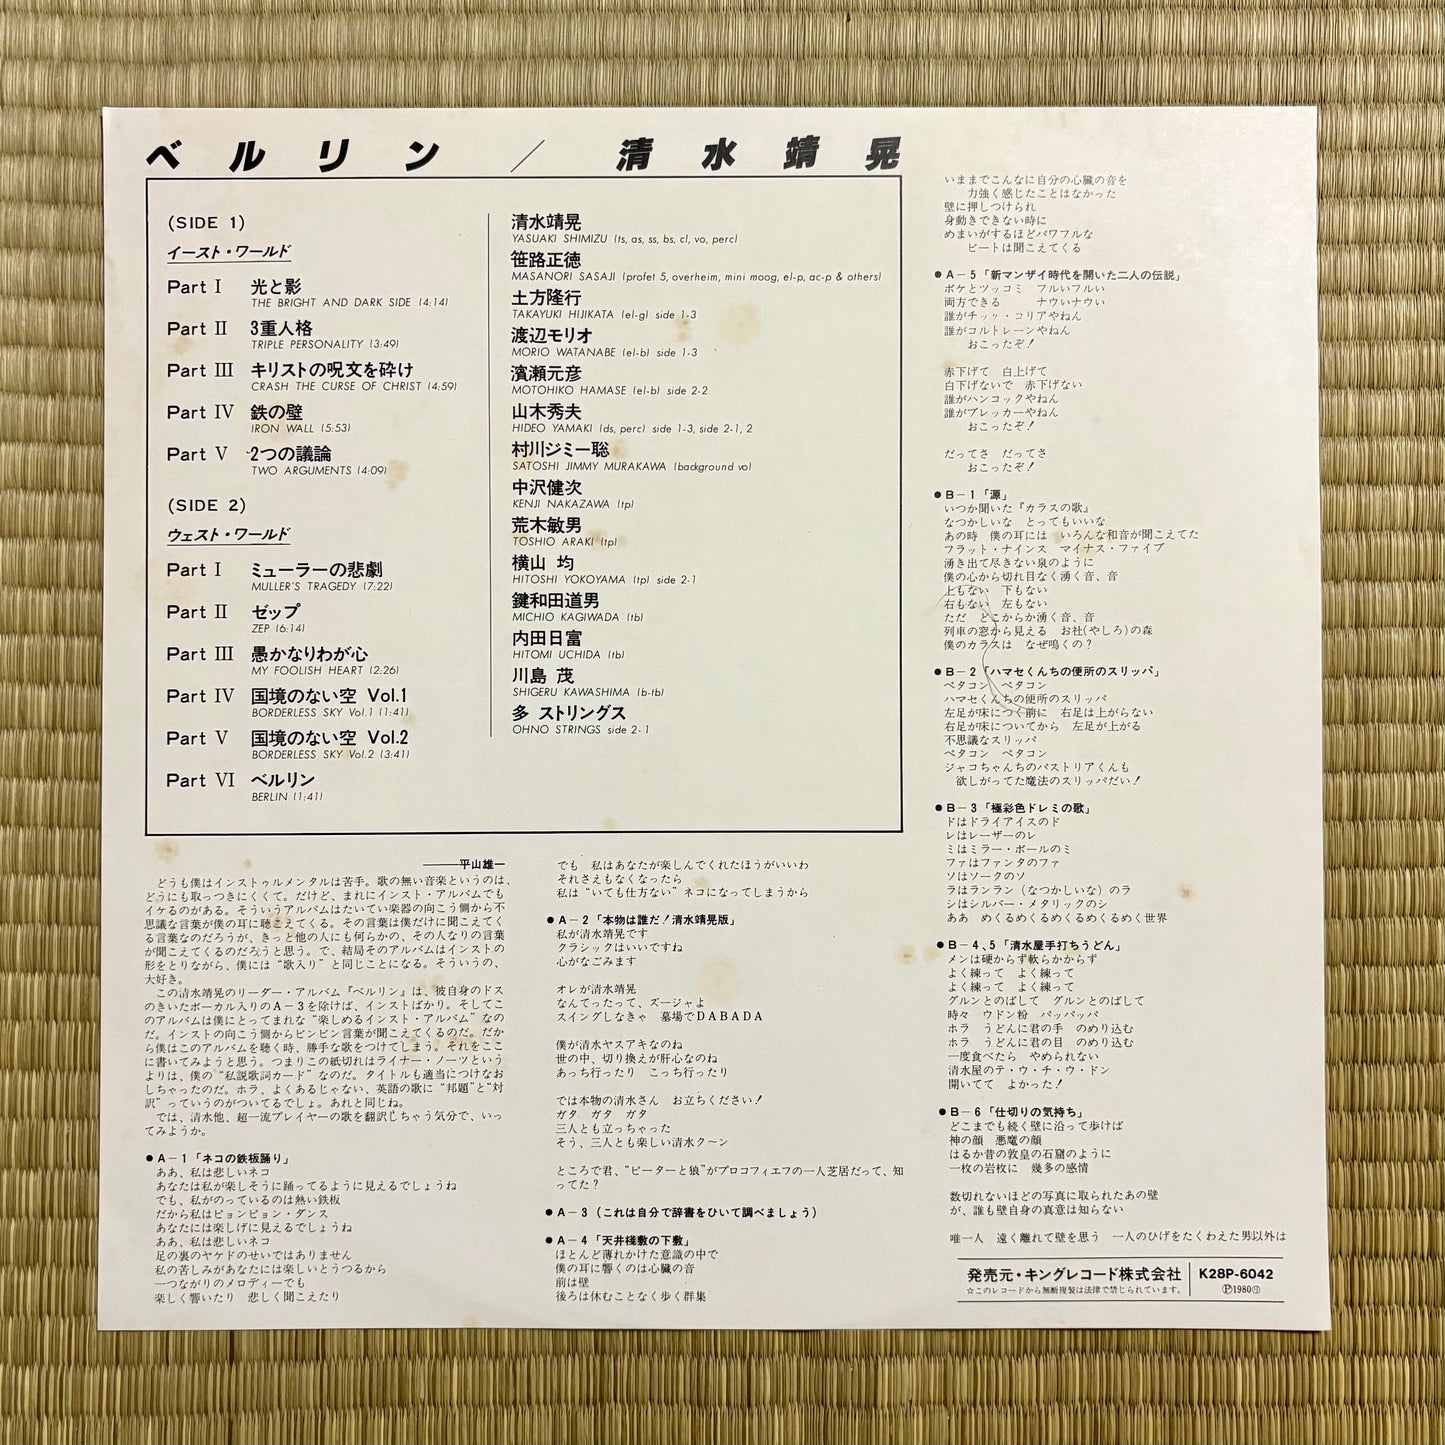 ベルリン／清水靖晃
(SIDE 1)
イースト・ワールド
Part Ⅰ 光と影
THE BRIGHT AND DARK SIDE (4:14)
Part Ⅱ 3重人格
TRIPLE PERSONALITY (3:49)
Part Ⅲ キリストの呪文を砕け
CRASH THE CURSE OF CHRIST (4:59)
Part Ⅳ 鉄の壁
IRON WALL (5:53)
Part Ⅴ 2つの議論
TWO ARGUMENTS (4:09)
(SIDE 2)
ウェスト・ワールド
Part Ⅰ ミューラーの悲劇
MULLER'S TRAGEDY (7:22)
Part Ⅱ ゼップ
ZEP (6:14)
Part Ⅲ 愚かなりわが心
MY FOOLISH HEART (2:26)
Part Ⅳ 国境のない空 Vol.1
BORDERLESS SKY Vol.1 (1:41)
Part Ⅴ 国境のない空 Vol.2
BORDERLESS SKY Vol.2 (3:41)
Part Ⅵ ベルリン
BERLIN (1:41)
清水靖晃
YASUAKI SHIMIZU (ts, as, ss, bs, cl, vo, perc)
笹路正徳
MASANORI SASAJI (profet 5, overheim, mini moog, el-p, ac-p & others)
土方隆行
TAKAYUKI HIJIKATA (el-g) side 1-3
渡辺モリオ
MORIO WATANABE (el-b) side 1-3
濱瀬元彦
MOTOHIKO HAMASE (el-b) side 2-2
山木秀夫
HIDEO YAMAKI (ds, perc) side 1-3, side 2-1, 2
村川ジミー聡
SATOSHI JIMMY MURAKAWA (background vo)
中沢健次
KENJI NAKAZAWA (tp)
荒木敏男
TOSHIO ARAKI (tp)
横山 均
HITOSHI YOKOYAMA (tp) side 2-1
鍵和田道男
MICHIO KAGIWADA (tb)
内田日富
HITOMI UCHIDA (tb)
川島 茂
SHIGERU KAWASHIMA (b-tb)
多 ストリングス
OHNO STRINGS side 2-1
——平山雄一
どうも僕はインストゥルメンタルは苦手。歌の無い音楽というのは、
どうにも取っつきにくくて。だけど、まれにインスト・アルバムでも
イケるのがある。そういうアルバムはたいてい楽器の向こう側から不
思議な言葉が僕の耳に聴こえてくる。その言葉は僕だけに聞こえてく
る言葉なのだろうが、きっと他の人にも何らかの、その人なりの言葉
が聞こえてくるのだろうと思う。で、結局そのアルバムはインストの
形をとりながら、僕には“歌入り”と同じことになる。そういうの、
大好き。
この清水靖晃のリーダー・アルバム『ベルリン』は、彼自身のドス
のきいたボーカル入りのA－3を除けば、インストばかり。そしてこ
のアルバムは僕にとってまれな“楽しめるインスト・アルバム”なの
だ。インストの向こう側からビンビン言葉が聞こえてくるのだ。だか
ら僕はこのアルバムを聴く時、勝手な歌をつけてしまう。それをここ
に書いてみようと思う。つまりこの紙切れはライナー・ノーツという
よりは、僕の“私説歌詞カード”なのだ。タイトルも適当につけなお
しちゃったのだ。ホラ、よくあるじゃない、英語の歌に“邦題”と“対
訳”っていうのがついてるでしょ。あれと同じね。
では、清水他、超一流プレイヤーの歌を翻訳しちゃう気分で、いっ
てみようか。
●A－1「ネコの鉄板踊り」
ああ、私は悲しいネコ
あなたは私が楽しそうに踊ってるように見えるでしょうね
でも、私がのっているのは熱い鉄板
だから私はピョンピョン・ダンス
あなたには楽しげに見えるでしょうね
ああ、私は悲しいネコ
足の裏のヤケドのせいではありません
私の苦しみがあなたには楽しいとうつるから
一つながりのメロディーでも
楽しく響いたり 悲しく聞こえたり
でも 私はあなたが楽しんでくれたほうがいいわ
それさえもなくなったら
私は“いても仕方ない”ネコになってしまうから
●A－2「本物は誰だ！清水靖晃版」
私が清水靖晃です
クラシックはいいですね
心がなごみます
オレが清水靖晃
なんてったって、ズージャよ
スイングしなきゃ 墓場でDABADA
僕が清水ヤスアキなのね
世の中、切り換えが肝心なのね
あっち行ったり こっち行ったり
では本物の清水さん お立ちください！
ガタ ガタ ガタ
三人とも立っちゃった
そう、三人とも楽しい清水ク〜ン
ところで君、“ピーターと狼”がプロコフィエフの一人芝居だって、知
ってた？
●A－3（これは自分で辞書をひいて調べましょう）
●A－4「天井桟敷の下敷」
ほとんど薄れかけた意識の中で
僕の耳に響くのは心臓の音
前は壁
後ろは休むことなく歩く群集
いままでこんなに自分の心臓の音を
力強く感じたことはなかった
壁に押しつけられ
身動きできない時に
めまいがするほどパワフルな
ビートは聞こえてくる
●A－5「新マンザイ時代を開いた二人の伝説」
ボケとツッコミ フルいフルい
両方できる ナウいナウい
誰がチック・コリアやねん
誰がコルトレーンやねん
おこったぞ！
赤下げて 白上げて
白下げないで 赤下げない
誰がハンコックやねん
誰がブレッカーやねん
おこったぞ！
だってさ だってさ
おこったぞ！
●B－1「源」
いつか聞いた『カラスの歌』
なつかしいな とってもいいな
あの時 僕の耳には いろんな和音が聞こえてた
フラット・ナインス マイナス・ファイブ
湧き出て尽きない泉のように
僕の心から切れ目なく湧く音、音
上もない 下もない
右もない 左もない
ただ どこからか湧く音、音
列車の窓から見える お社(やしろ)の森
僕のカラスは なぜ鳴くの？
●B－2「ハマセくんちの便所のスリッパ」
ペタコン ペタコン
ハマセくんちの便所のスリッパ
左足が床につく前に 右足は上がらない
右足が床についてから 左足が上がる
不思議なスリッパ
ペタコン ペタコン
ジャコちゃんちのパストリアくんも
欲しがってた魔法のスリッパだい！
●B－3「極彩色ドレミの歌」
ドはドライアイスのド
レはレーザーのレ
ミはミラー・ボールのミ
ファはファンタのファ
ソはソークのソ
ラはランラン（なつかしいな）のラ
シはシルバー・メタリックのシ
ああ めくるめくるめくるめくるめく世界
●B－4、5「清水屋手打ちうどん」
メンは硬からず軟らかからず
よく練って よく練って
よく練って よく練って
グルンとのばして グルンとのばして
時々 ウドン粉 パッパッパ
ホラ うどんに君の手 のめり込む
ホラ うどんに君の目 のめり込む
一度食べたら やめられない
清水屋のテ・ウ・チ・ウ・ドン
開いてて よかった！
●B－6「仕切りの気持ち」
どこまでも続く壁に沿って歩けば
神の顔 悪魔の顔
はるか昔の敦皇の石窟のように
一枚の岩枚に 幾多の感情
数切れないほどの写真に取られたあの壁
が、誰も壁自身の真意は知らない
唯一人 遠く離れて壁を思う 一人のひげをたくわえた男以外は
発売元・キングレコード株式会社 K28P-6042
☆このレコードから無断複製は法律で禁じられています。 Ⓟ1980